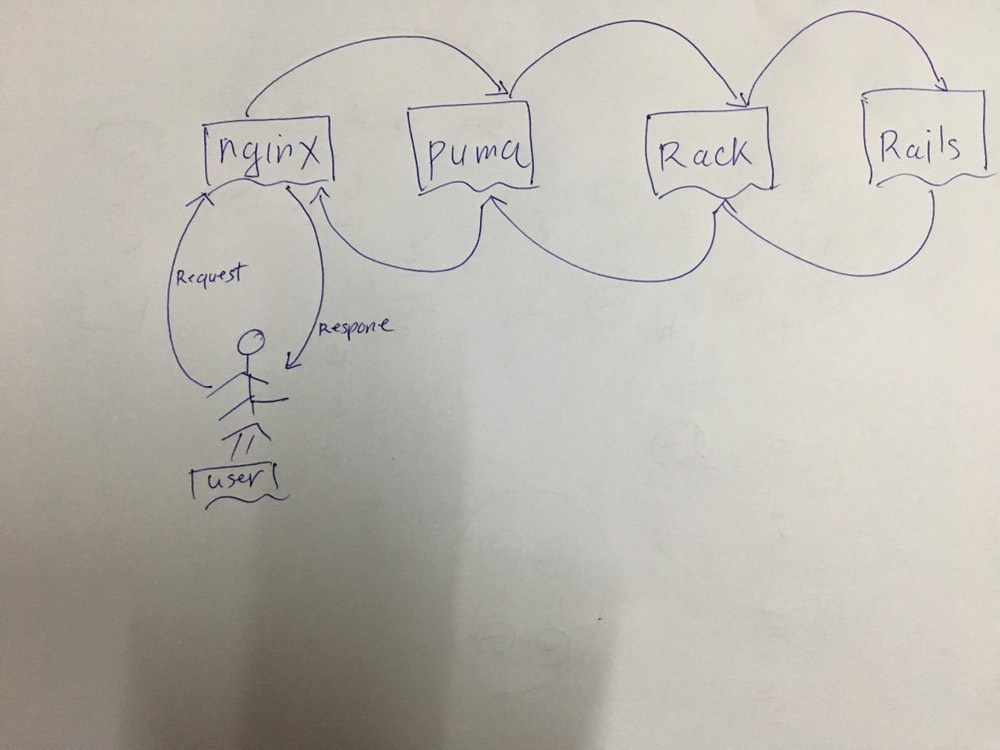 nginx
puma
Rack
Rails
Request
Respone
user